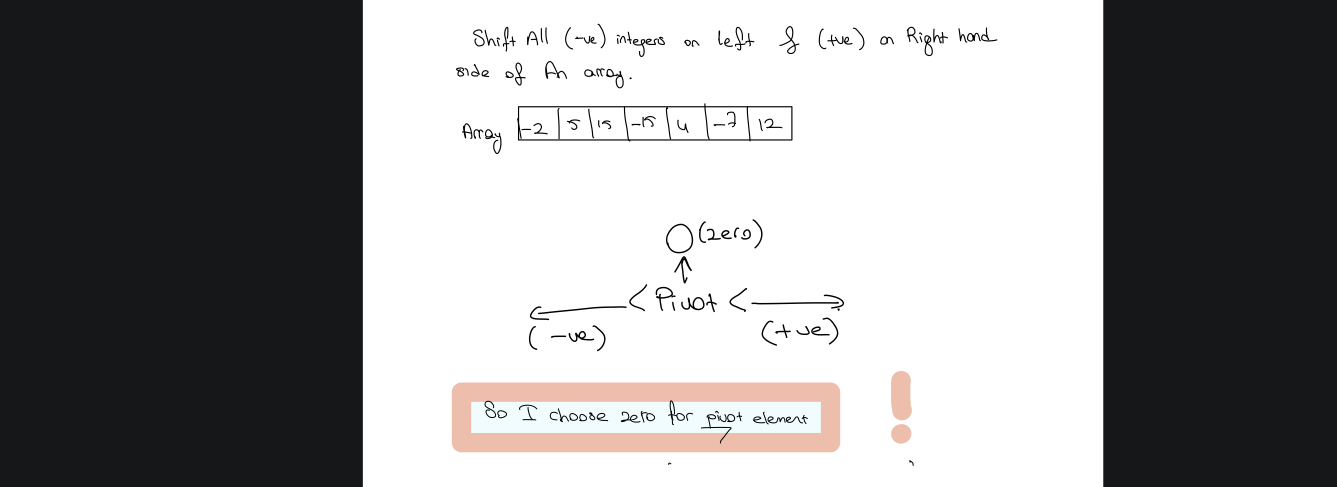 Shift All (-ve) integers on left & (+ve) on Right hand
side of An array.
Array -2 5 15 -15 4 -7 12
(zero)
< Pivot <
(-ve) (+ve)
So I choose zero for pivot element
!